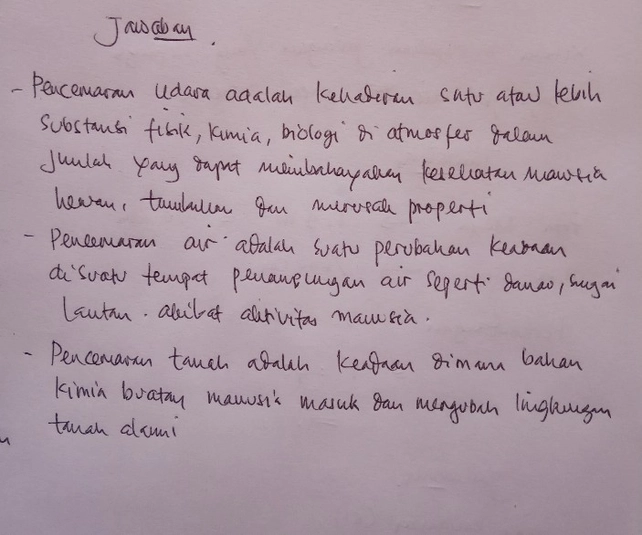 Jawaban.
- Pencemaran udara adalah kehadiran satu atau lebih
substansi fisik, kimia, biologi di atmosfer dalam
jumlah yang dapat membahayakan kesehatan manusia
hewan, tumbuhan dan merusak properti
- Pencemaran air adalah suatu perubahan keadaan
di suatu tempat penampungan air seperti danau, sungai
lautan. akibat aktivitas manusia.
- Pencemaran tanah adalah keadaan dimana bahan
kimia buatan manusia masuk dan mengubah lingkungan
tanah alami